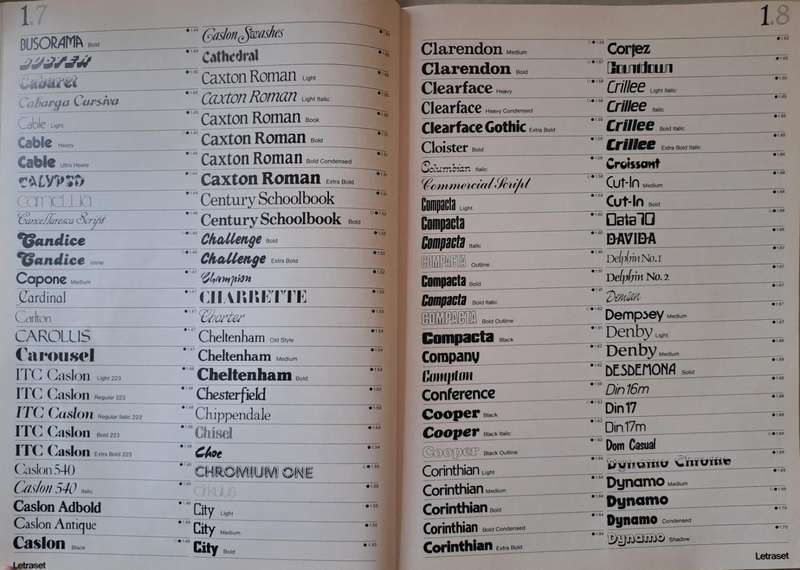 1.7
BUSORAMA Bold
BUSTER
Cabaret
Cabarga Cursiva
Cable Light
Cable Heavy
Cable Ultra Heavy
CALYPSO
camellia
Cancellaresca Script
Candice
Candice Inline
Capone Medium
Cardinal
Carlton
CAROLUS
Carousel
ITC Caslon Light 223
ITC Caslon Regular 223
ITC Caslon Regular Italic 223
ITC Caslon Bold 223
ITC Caslon Extra Bold 223
Caslon 540
Caslon 540 Italic
Caslon Adbold
Caslon Antique
Caslon Black
Letraset
Caslon Swashes
Cathedral
Caxton Roman Light
Caxton Roman Light Italic
Caxton Roman Book
Caxton Roman Bold
Caxton Roman Bold Condensed
Caxton Roman Extra Bold
Century Schoolbook
Century Schoolbook Bold
Challenge Bold
Challenge Extra Bold
Champion
CHARRETTE
Charter
Cheltenham Old Style
Cheltenham Medium
Cheltenham Bold
Chesterfield
Chippendale
Chisel
Choc
CHROMIUM ONE
cirkulus
City Light
City Medium
City Bold
1.8
Clarendon Medium
Clarendon Bold
Clearface Heavy
Clearface Heavy Condensed
Clearface Gothic Extra Bold
Cloister Bold
Columbian Italic
Commercial Script
Compacta Light
Compacta
Compacta Italic
COMPACTA Outline
Compacta Bold
Compacta Bold Italic
COMPACTA Bold Outline
Compacta Black
Company
Compton
Conference
Cooper Black
Cooper Black Italic
Cooper Black Outline
Corinthian Light
Corinthian Medium
Corinthian Bold
Corinthian Bold Condensed
Corinthian Extra Bold
Cortez
Countdown
Crillee Light Italic
Crillee Italic
Crillee Bold Italic
Crillee Extra Bold Italic
Croissant
Cut-In Medium
Cut-In Bold
Data 70
DAVIDA
Delphin No. 1
Delphin No. 2
Demian
Dempsey Medium
Denby Light
Denby Medium
DESDEMONA Solid
Din 16m
Din 17
Din 17m
Dom Casual
Dynamo Chrome
Dynamo Medium
Dynamo
Dynamo Condensed
Dynamo Shadow
Letraset